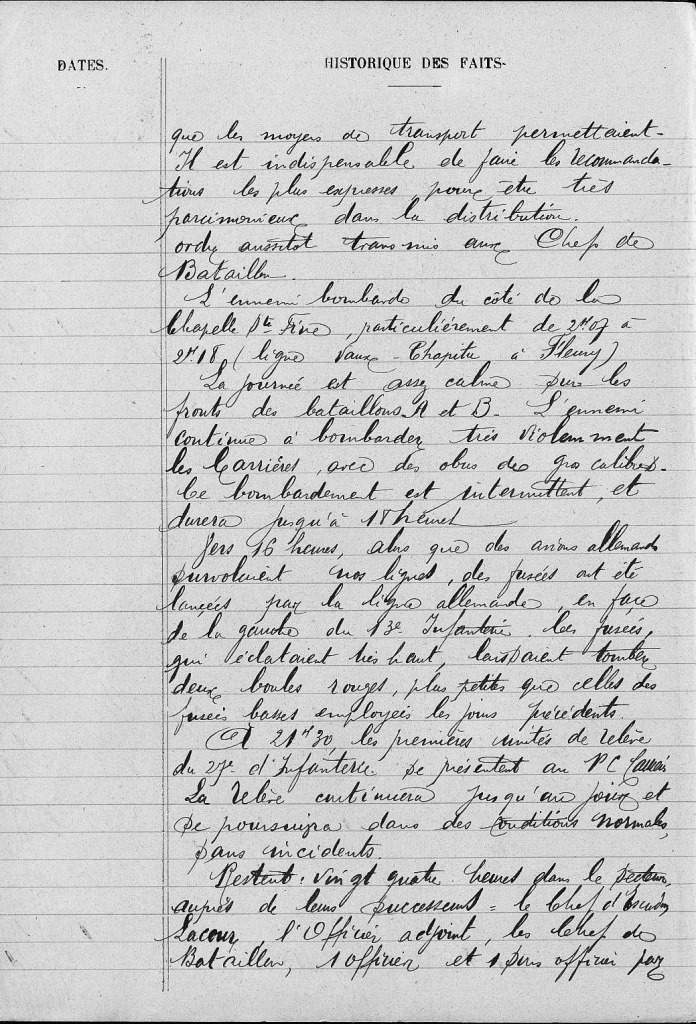 DATES.
HISTORIQUE DES FAITS-
que les moyens de transport permettaient-
Il est indispensable de faire les recommanda-
tions les plus expresses pour être très
parcimonieux dans la distribution.
ordre aussitôt transmis aux Chefs de
Bataillon.
L'ennemi bombarde du côté de la
Chapelle Ste Fine, particulièrement de 2H07 à
2H18 (ligne Vaux-Chapitre à Fleury)
La journée est assez calme sur les
fronts des bataillons A et B. L'ennemi
continue à bombarder très violemment
les Carrières, avec des obus de gros calibres.
Ce bombardement est intermittent, et
durera jusqu'à 18 heures
Vers 16 heures, alors que des avions allemands
survolaient nos lignes, des fusées ont été
lancées par la ligne allemande, en face
de la gauche du 13e Infanterie. Les fusées,
qui éclataient très haut, laissaient tomber
deux boules rouges, plus petites que celles des
fusées basses employées les jours précédents.
A 21H30, les premières unités de relève
du 27e d'Infanterie se présentent au PC
La relève continuera jusqu'au jour et
se poursuivra dans des conditions normales,
sans incidents.
Restent vingt quatre heures dans le secteur,
auprès de leurs successeurs = le Chef d'Escadron
Lacour, l'Officier adjoint, les Chefs de
Bataillon, 1 officier et 1 sous officier par